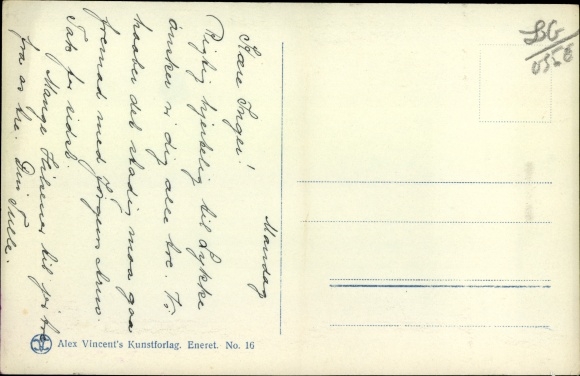 Mandag
Kære Inger!
Rigtig hjertelig til Lykke
ønsker vi dig alle tre. Vi
haaber det stadig maa gaa
fremad med Jørgen Arno.
Tak for sidst.
Mange Hilsener til jer tre
fra os tre. Din Tulle.
Alex Vincent's Kunstforlag. Eneret. No. 16
BG
0356